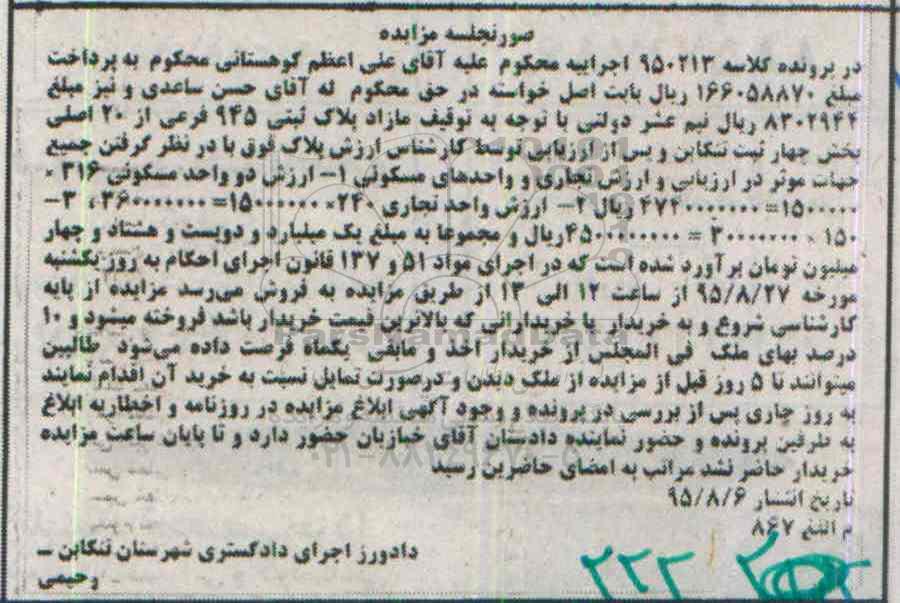 صورتجلسه مزایده
در پرونده کلاسه ۹۵۰۲۱۳ اجراییه محکوم علیه آقای علی اعظم کوهستانی محکوم به پرداخت
مبلغ ۱۶۶۰۵۸۸۷۰ ریال بابت اصل خواسته در حق محکوم له آقای حسن ساعدی و نیز مبلغ
۸۳۰۲۹۴۴ ریال نیم عشر دولتی با توجه به توقیف مازاد پلاک ثبتی ۹۴۵ فرعی از ۲۰ اصلی
بخش چهار ثبت تنکابن و پس از ارزیابی توسط کارشناس ارزش پلاک فوق با در نظر گرفتن جمیع
جهات موثر در ارزیابی و ارزش تجاری و واحدهای مسکونی ۱- ارزش دو واحد مسکونی ۳۱۶ ×
ریال ۲- ارزش واحد تجاری ۲۴۰×
۱۵۰ × = ریال و مجموعا به مبلغ یک میلیارد و دویست و هشتاد و چهار
میلیون تومان برآورد شده است که در اجرای مواد ۵۱ و ۱۳۷ قانون اجرای احکام به روز یکشنبه
مورخه ۹۵/۸/۲۷ از ساعت ۱۲ الی ۱۳ از طریق مزایده به فروش می‌رسد مزایده از پایه
کارشناسی شروع و به خریدار یا خریدارانی که بالاترین قیمت خریدار باشد فروخته میشود و ۱۰
درصد بهای ملک فی المجلس از خریدار اخذ و مابقی یکماه فرصت داده می‌شود طالبین
میتوانند تا ۵ روز قبل از مزایده از ملک دیدن و درصورت تمایل نسبت به خرید آن اقدام نمایند
به روز جاری پس از بررسی در پرونده و وجود آگهی ابلاغ مزایده در روزنامه و اخطاریه ابلاغ
به طرفین پرونده و حضور نماینده دادستان آقای خبازیان حضور دارد و تا پایان ساعت مزایده
خریدار حاضر نشد مراتب به امضای حاضرین رسید
تاریخ انتشار ۹۵/۸/۶
م الف ۸۶۷
دادورز اجرای دادگستری شهرستان تنکابن –
رحیمی
۲۲۳
ParsNamadData